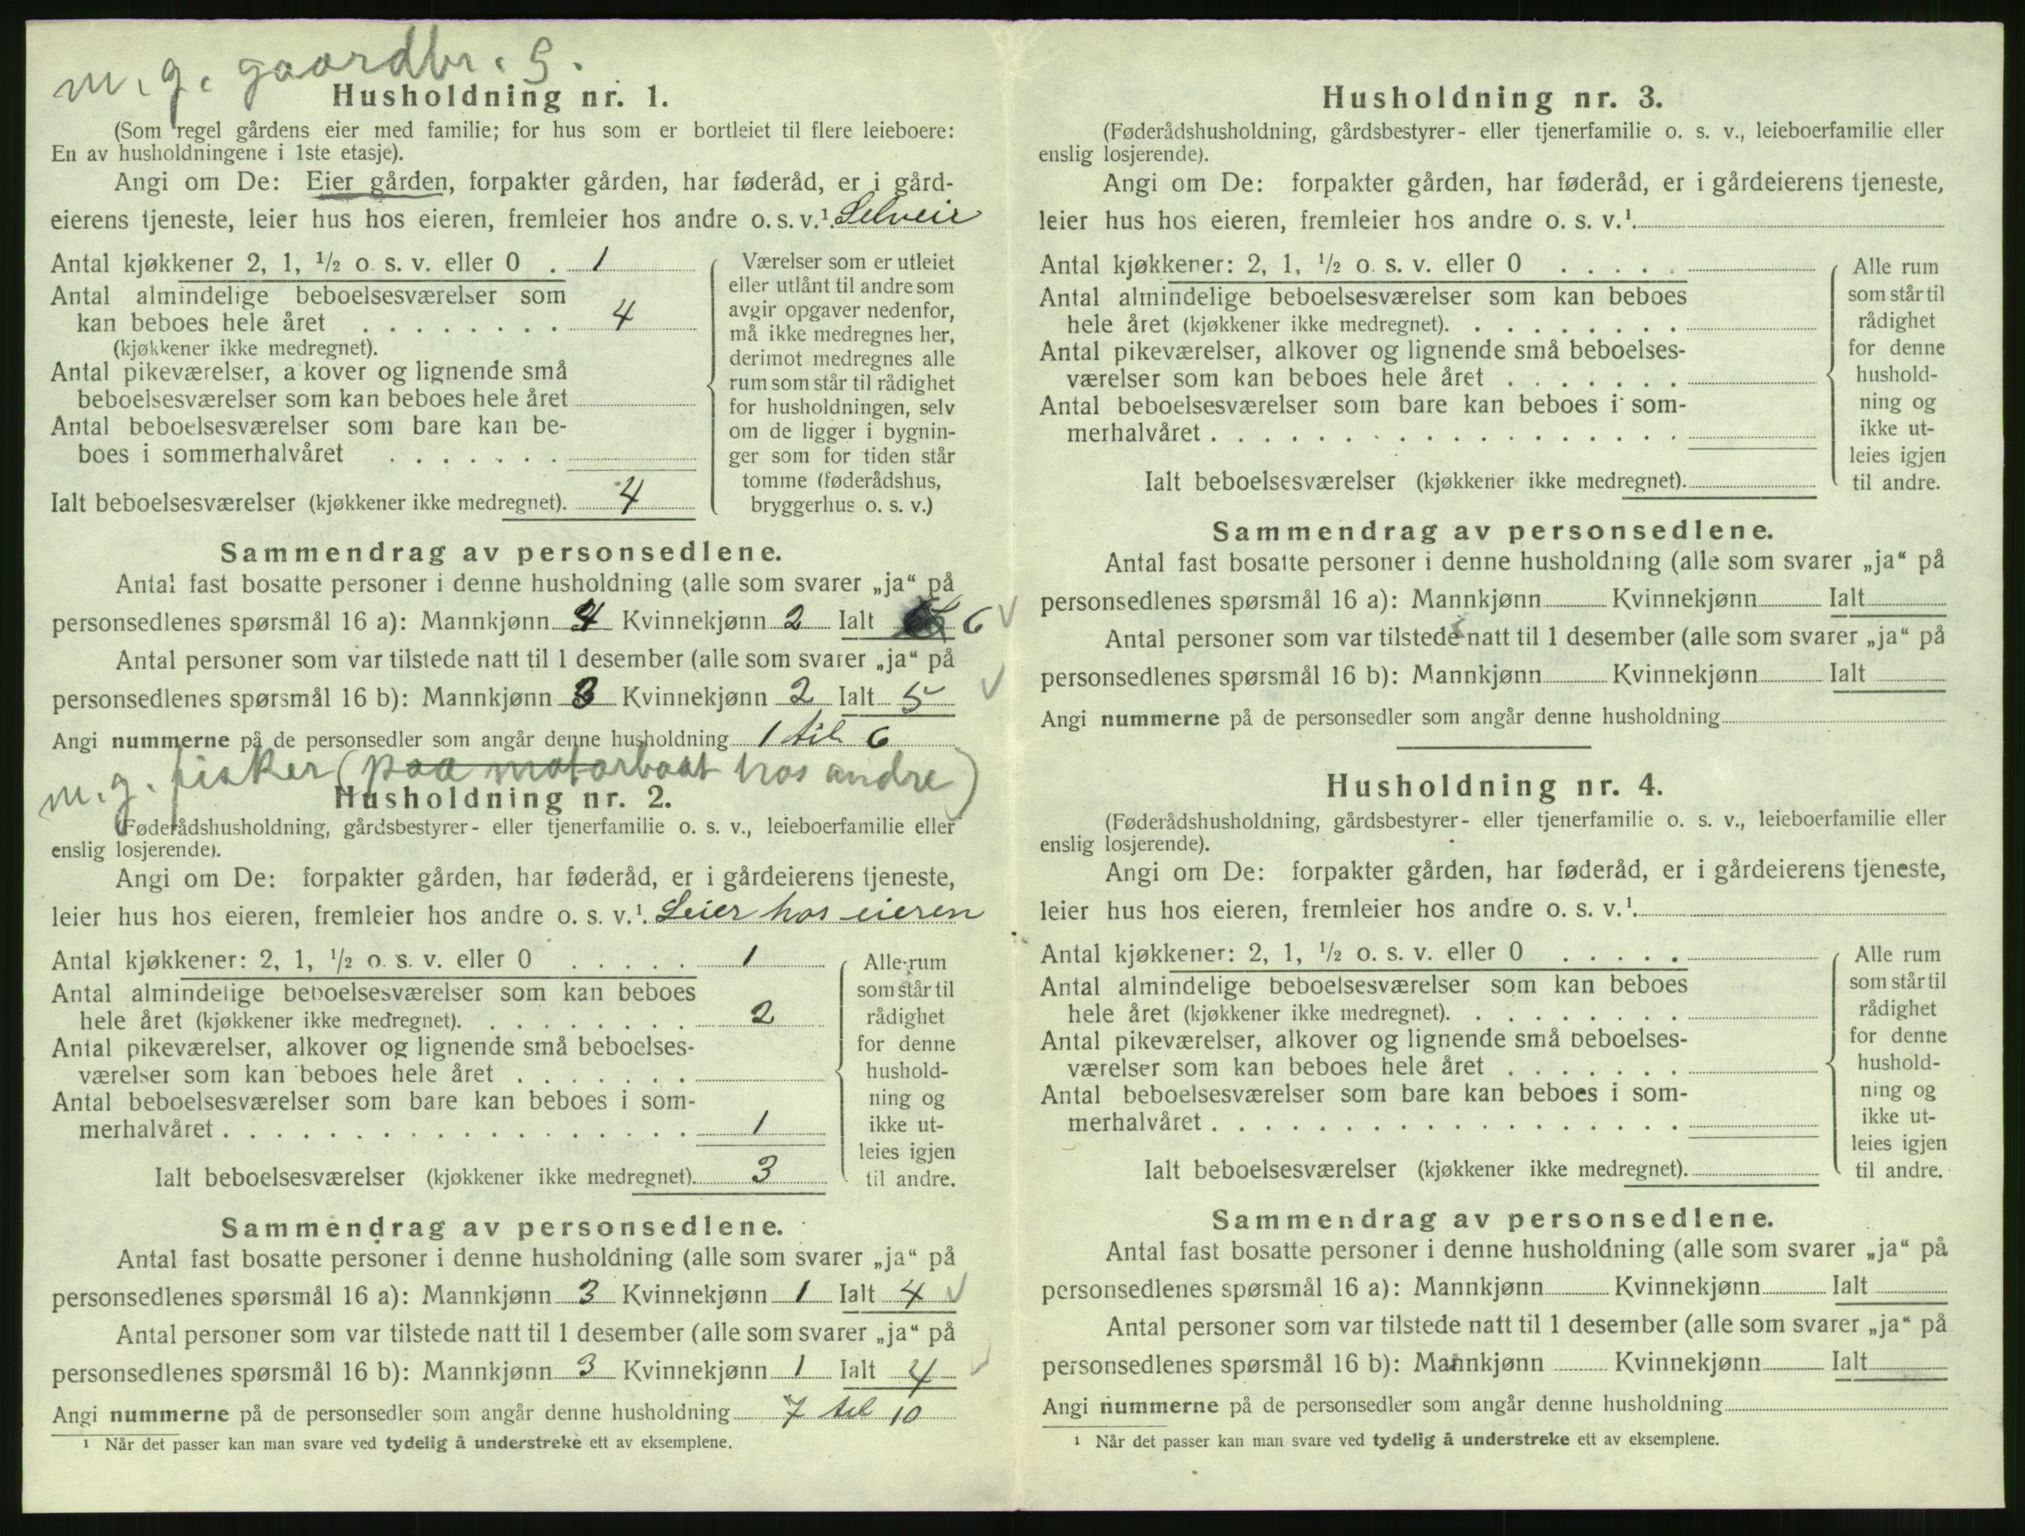 m. g. gaardbr. S.
Husholdning nr. 1.
(Som regel gårdens eier med familie; for hus som er bortleiet til flere leieboere:
En av husholdningene i 1ste etasje).
Angi om De: Eier gården, forpakter gården, har føderåd, er i gård-
eierens tjeneste, leier hus hos eieren, fremleier hos andre o. s. v.¹. Selveir
Antal kjøkkener 2, 1, ½ o. s. v. eller 0 . 1
Antal almindelige beboelsesværelser som
kan beboes hele året . . . . . . . . 4
(kjøkkener ikke medregnet).
Antal pikeværelser, a kover og lignende små
beboelsesværelser som kan beboes hele året
Antal beboelsesværelser som bare kan be-
boes i sommerhalvåret . . . . . .
Ialt beboelsesværelser (kjøkkener ikke medregnet). 4
Værelser som er utleiet
eller utlånt til andre som
avgir opgaver nedenfor,
må ikke medregnes her,
derimot medregnes alle
rum som står til rådighet
for husholdningen, selv
om de ligger i bygnin-
ger som for tiden står
tomme (føderådshus,
bryggerhus o. s. v.)
Sammendrag av personsedlene.
Antal fast bosatte personer i denne husholdning (alle som svarer „ja“ på
personsedlenes spørsmål 16 a): Mannkjønn 4 Kvinnekjønn 2 Ialt 6
Antal personer som var tilstede natt til 1 desember (alle som svarer „ja“ på
personsedlenes spørsmål 16 b): Mannkjønn 3 Kvinnekjønn 2 Ialt 5
Angi nummerne på de personsedler som angår denne husholdning 1 til 6
m. g. fisker (paa motorbaat hos andre)
Husholdning nr. 2.
(Føderådshusholdning, gårdsbestyrer- eller tjenerfamilie o. s. v., leieboerfamilie eller
enslig losjerende).
Angi om De: forpakter gården, har føderåd, er i gårdeierens tjeneste,
leier hus hos eieren, fremleier hos andre o. s. v.¹. Leier hos eieren
Antal kjøkkener: 2, 1, ½ o. s. v. eller 0 . . . . . 1
Antal almindelige beboelsesværelser som kan beboes
hele året (kjøkkener ikke medregnet). . . . . . . . . 2
Antal pikeværelser, alkover og lignende små beboelses-
værelser som kan beboes hele året . . . . . . .
Antal beboelsesværelser som bare kan beboes i som-
merhalvåret . . . . . . . . . . . . . . . . . . 1
Ialt beboelsesværelser (kjøkkener ikke medregnet). 3
Alle rum
som står til
rådighet
for denne
hushold-
ning og
ikke ut-
leies igjen
til andre.
Sammendrag av personsedlene.
Antal fast bosatte personer i denne husholdning (alle som svarer „ja“ på
personsedlenes spørsmål 16 a): Mannkjønn 3 Kvinnekjønn 1 Ialt 4
Antal personer som var tilstede natt til 1 desember (alle som svarer „ja“ på
personsedlenes spørsmål 16 b): Mannkjønn 3 Kvinnekjønn 1 Ialt 4
Angi nummerne på de personsedler som angår denne husholdning 7 til 10
¹ Når det passer kan man svare ved tydelig å understreke ett av eksemplene.
Husholdning nr. 3.
(Føderådshusholdning, gårdsbestyrer- eller tjenerfamilie o. s. v., leieboerfamilie eller
enslig losjerende).
Angi om De: forpakter gården, har føderåd, er i gårdeierens tjeneste,
leier hus hos eieren, fremleier hos andre o. s. v.¹.
Antal kjøkkener: 2, 1, ½ o. s. v. eller 0 . . . . .
Antal almindelige beboelsesværelser som kan beboes
hele året (kjøkkener ikke medregnet). . . . . . . . .
Antal pikeværelser, alkover og lignende små beboelses-
værelser som kan beboes hele året . . . . . . .
Antal beboelsesværelser som bare kan beboes i som-
merhalvåret . . . . . . . . . . . . . . . . . .
Ialt beboelsesværelser (kjøkkener ikke medregnet).
Alle rum
som står til
rådighet
for denne
hushold-
ning og
ikke ut-
leies igjen
til andre.
Sammendrag av personsedlene.
Antal fast bosatte personer i denne husholdning (alle som svarer „ja“ på
personsedlenes spørsmål 16 a): Mannkjønn Kvinnekjønn Ialt
Antal personer som var tilstede natt til 1 desember (alle som svarer „ja“ på
personsedlenes spørsmål 16 b): Mannkjønn Kvinnekjønn Ialt
Angi nummerne på de personsedler som angår denne husholdning
Husholdning nr. 4.
(Føderådshusholdning, gårdsbestyrer- eller tjenerfamilie o. s. v., leieboerfamilie eller
enslig losjerende).
Angi om De: forpakter gården, har føderåd, er i gårdeierens tjeneste,
leier hus hos eieren, fremleier hos andre o. s. v.¹.
Antal kjøkkener: 2, 1, ½ o. s. v. eller 0 . . . . .
Antal almindelige beboelsesværelser som kan beboes
hele året (kjøkkener ikke medregnet). . . . . . . . .
Antal pikeværelser, alkover og lignende små beboelses-
værelser som kan beboes hele året . . . . . . .
Antal beboelsesværelser som bare kan beboes i som-
merhalvåret . . . . . . . . . . . . . . . . . .
Ialt beboelsesværelser (kjøkkener ikke medregnet).
Alle rum
som står til
rådighet
for denne
hushold-
ning og
ikke ut-
leies igjen
til andre.
Sammendrag av personsedlene.
Antal fast bosatte personer i denne husholdning (alle som svarer „ja“ på
personsedlenes spørsmål 16 a): Mannkjønn Kvinnekjønn Ialt
Antal personer som var tilstede natt til 1 desember (alle som svarer „ja“ på
personsedlenes spørsmål 16 b): Mannkjønn Kvinnekjønn Ialt
Angi nummerne på de personsedler som angår denne husholdning
¹ Når det passer kan man svare ved tydelig å understreke ett av eksemplene.